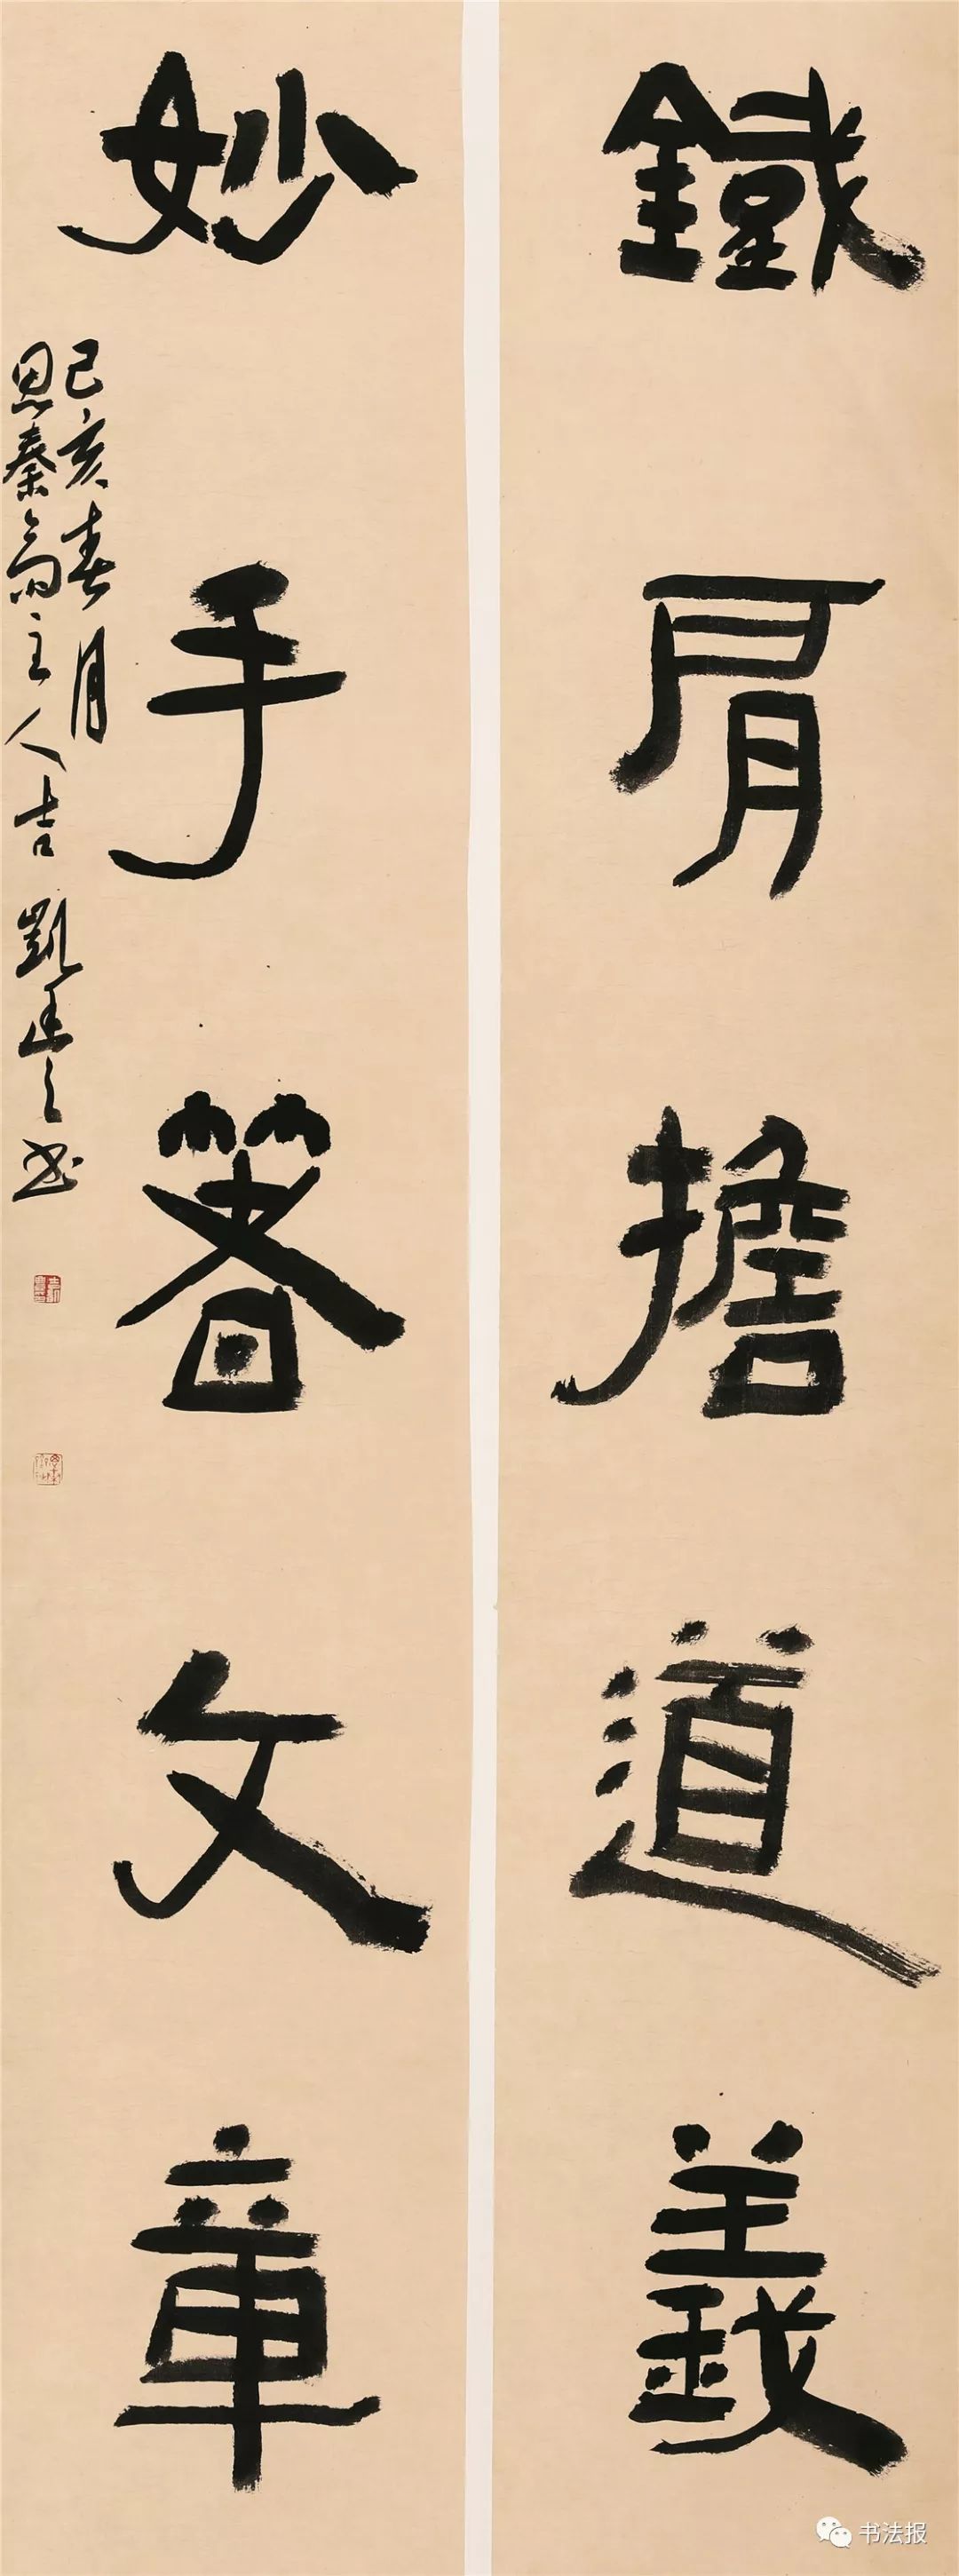 鐵肩擔道義
妙手著文章
己亥春月
思秦齋主人吉凱
书法报